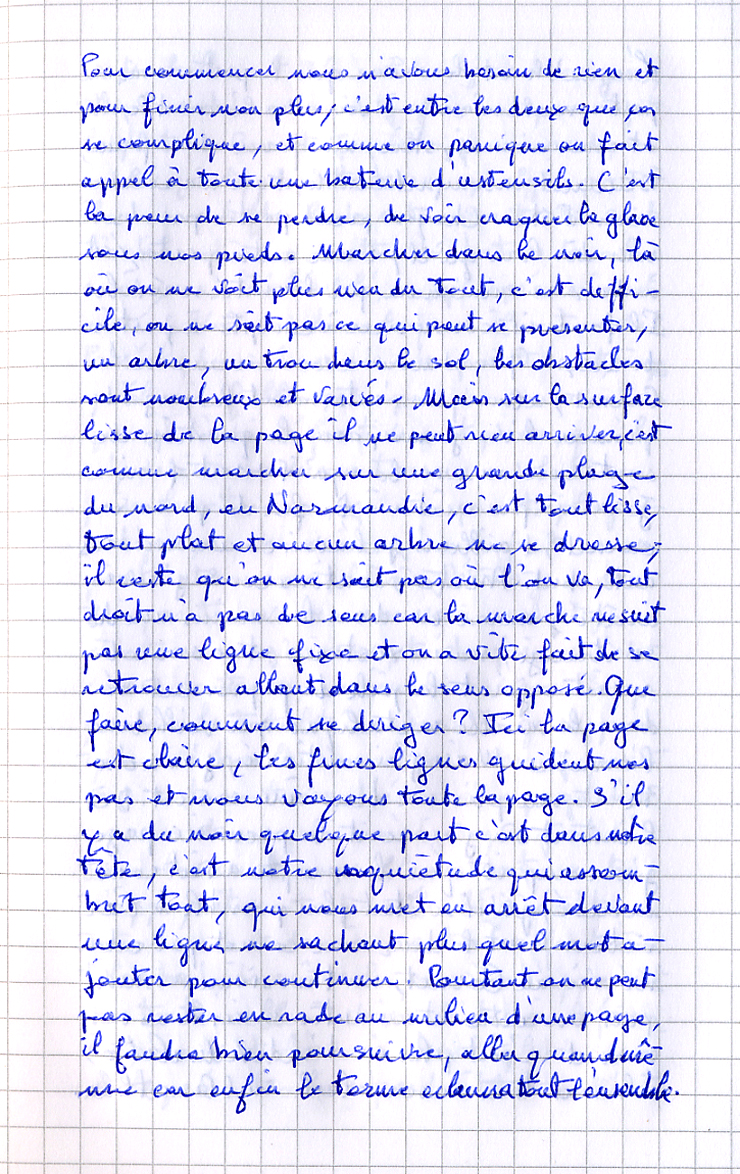 Pour commencer nous n'avons besoin de rien et
pour finir non plus, c'est entre les deux que ça
se complique, et comme on panique on fait
appel à toute une batterie d'ustensils. C'est
la peur de se perdre, de voir craquer la glace
sous nos pieds. Marcher dans le noir, là
où on ne voit plus rien du tout, c'est diffi-
cile, on ne sait pas ce qui peut se présenter,
un arbre, un trou dans le sol, les obstacles
sont nombreux et variés. Mais sur la surface
lisse de la page il ne peut rien arriver, c'est
comme marcher sur une grande plage
du nord, en Normandie, c'est tout lisse,
tout plat et aucun arbre ne se dresse;
il reste qu'on ne sait pas où l'on va, tout
droit n'a pas de sens car la marche ne suit
pas une ligne fixe et on a vite fait de se
retrouver allant dans le sens opposé. Que
faire, comment se diriger? Ici la page
est claire, les fines lignes guident nos
pas et nous voyons toute la page. S'il
y a du noir quelque part c'est dans notre
tête, c'est notre inquiétude qui assom-
brit tout, qui nous met en arrêt devant
une ligne ne sachant plus quel mot a-
jouter pour continuer. Pourtant on ne peut
pas rester en rade au milieu d'une page,
il faudra bien poursuivre, aller quand mê
me car enfin le terme éclaira tout l'ensemble.